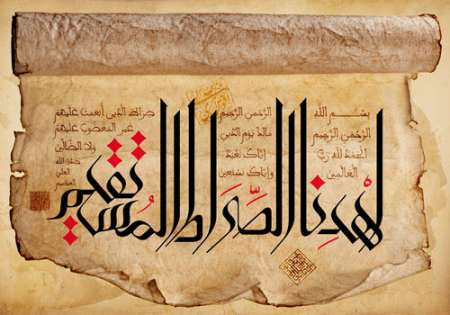 بسم الله
الرحمن الرحيم
الحمد لله رب
العالمين
الرحمن الرحيم
مالك يوم الدين
إياك نعبد
وإياك نستعين
اهْدِنا الصِّراط المُستقيم
صراط الذين أنعمت عليهم
غير المغضوب عليهم
ولا الضالين
صدق الله
العلي
العظيم